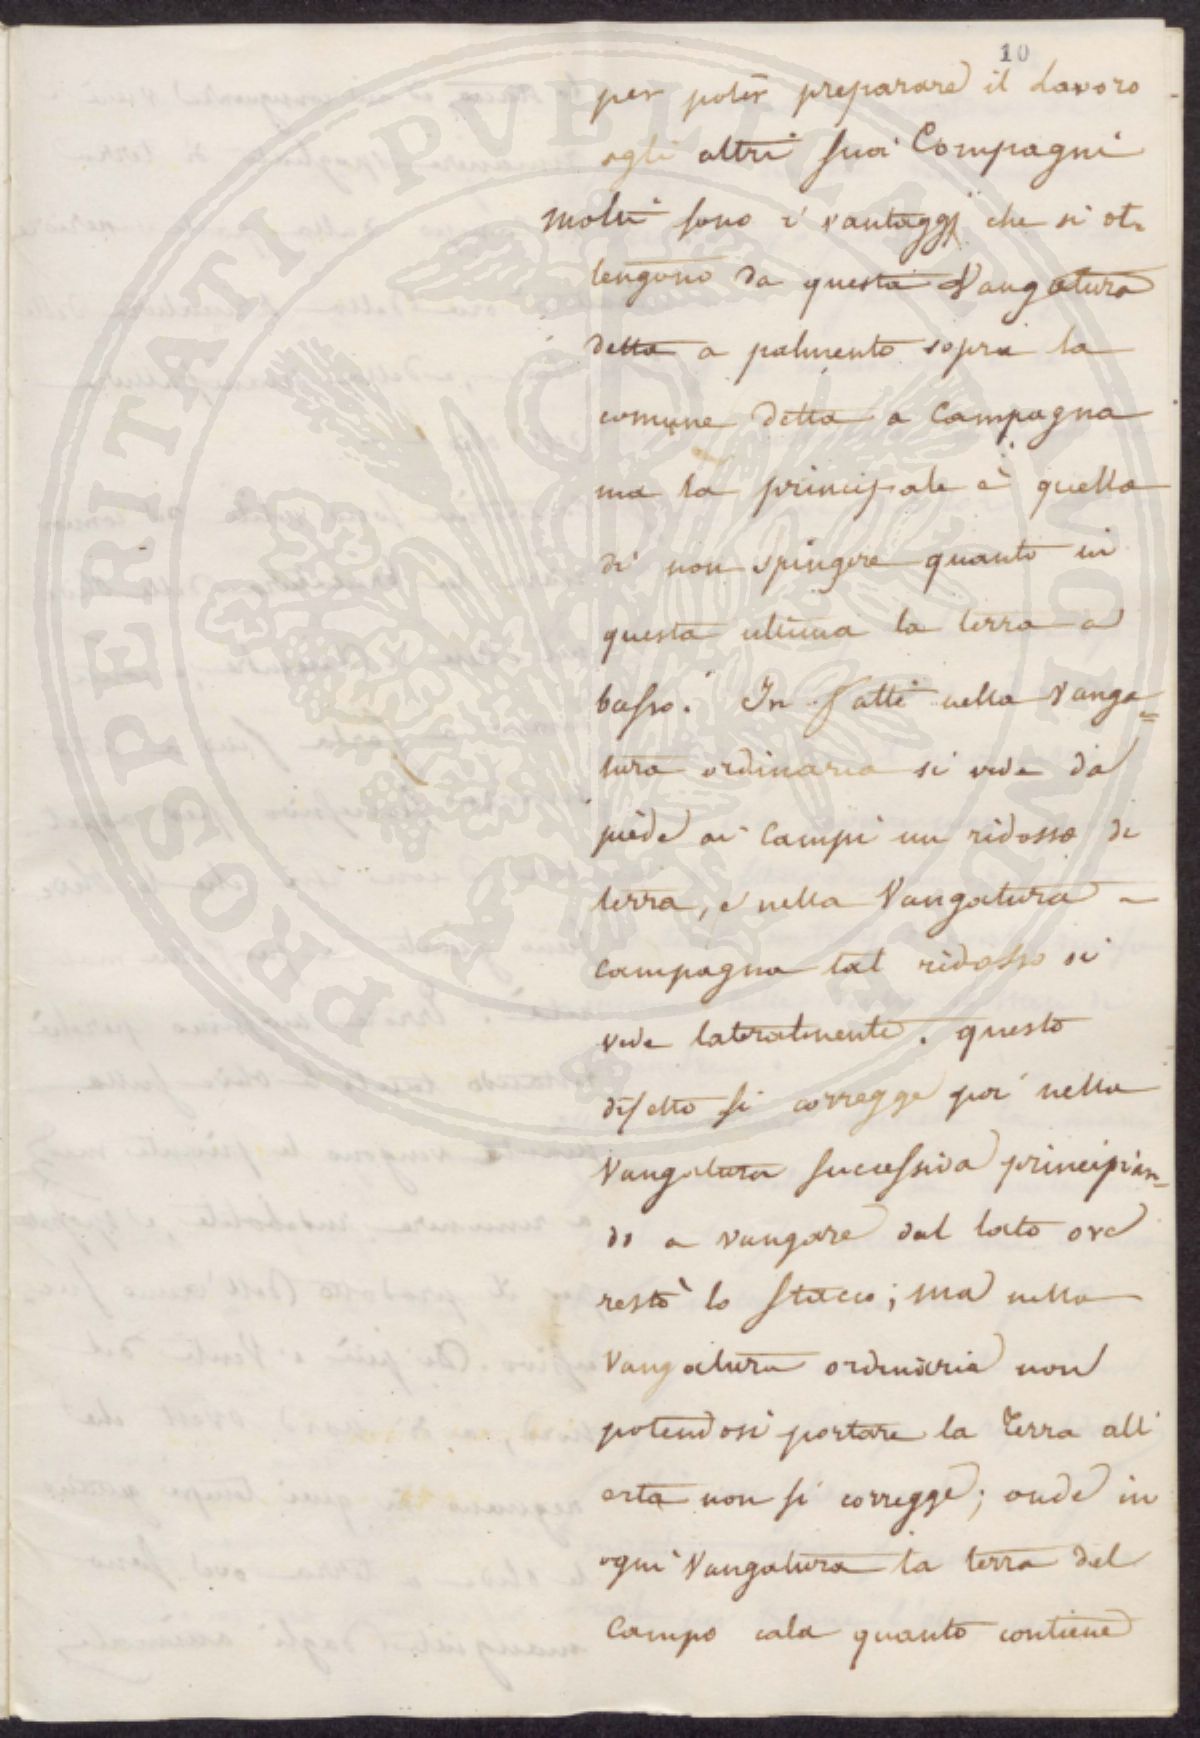 10
per poter preparare il Lavoro
agli altri suoi Compagni
Molti sono i vantaggj che si ot-
tengono da questa Vangatura
detta a palmento sopra la
comune detta a Campagna
ma la principale è quella
di non spingere quanto in
questa ultima la terra a
basso. In fatti nella Vanga=
tura ordinaria si vede da
piede ai Campi un ridosso di
terra, e nella Vangatura a
campagna tal ridosso si
vede lateralmente. questo
difetto si corregge poi nella
Vangatura successiva principian=
do a vangare dal lato ove
restò lo stacco; ma nella
Vangatura ordinaria non
potendosi portare la Terra all'
erta non si corregge; onde in
ogni Vangatura la terra del
Campo cala quanto contiene
PROSPERITATI PVBLICAE AVGENDAE